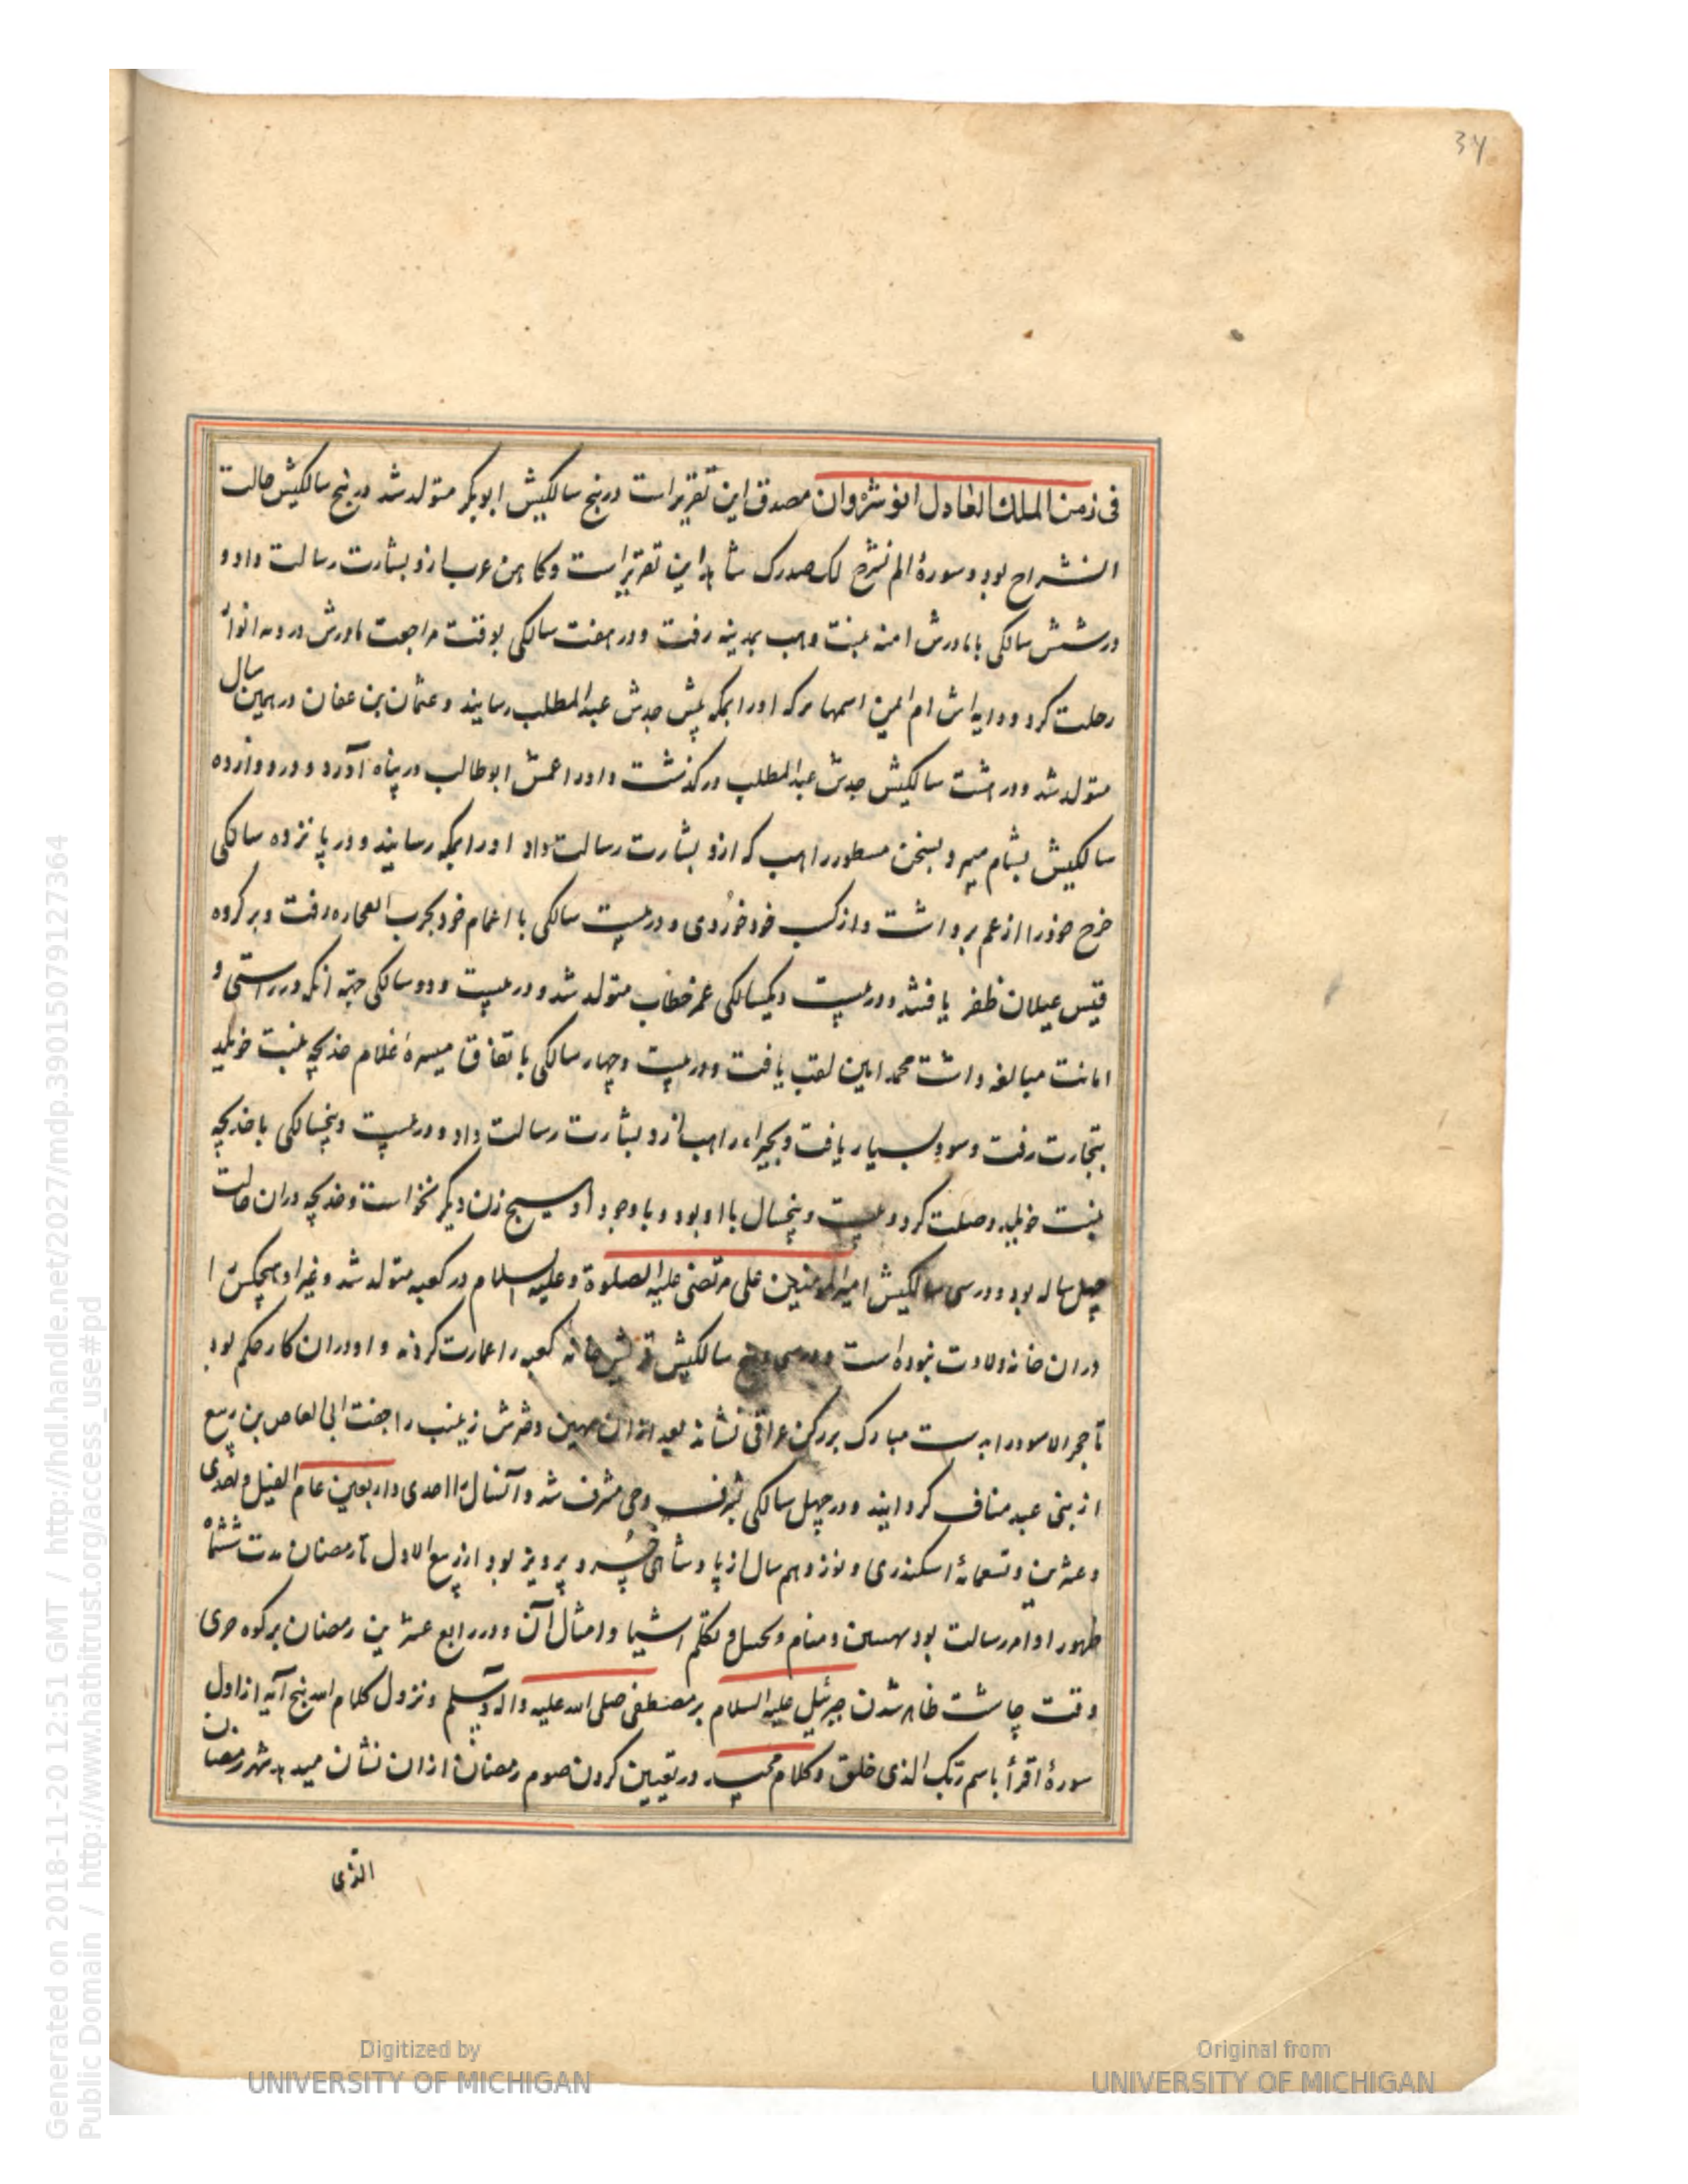 34
فی زمن الملک العادل انوشروان مصدق این تقریر است در پنج سالگیش ابوبکر متولد شد در پنج سالگیش حالت
انشراح بود و سورهٔ الم نشرح لک صدرک شاهد این تقریر است و کاهن عرب ازو بشارت رسالت داد و
در شش سالگی با مادرش امنه بنت وهب بمدینه رفت و در هفت سالگی بوقت مراجعت مادرش در
رحلت کرد و دایه اش ام ایمن اسمها برکه او را بمکه پیش جدش عبدالمطلب رسانید و عثمان بن عفان در همین سال
متولد شد و در هشت سالگیش جدش عبدالمطلب درگذشت و او را عمش ابوطالب در پناه آورد و در دوازده
سالگیش بشام میبرد بسخن مسطور راهب که ازو بشارت رسالت داد او را بمکه رسانید و در پانزده سالگی
خرج خود را از عم برداشت و از کسب خود خوردی و در بیست سالگی با اعمام خود بحرب الفجاره رفت و بر گروه
قیس عیلان ظفر یافتند و در بیست و یکسالگی عمر خطاب متولد شد و در بیست و دو سالگی جهة انکه در راستی و
امانت مبالغه داشت محمد امین لقب یافت و در بیست و چهار سالگی باتفاق میسره غلام خدیجه بنت خویلد
بتجارت رفت و سود بسیار یافت و بحیراء راهب ازو بشارت رسالت داد و در بیست و پنجسالگی با خدیجه
بنت خویلد وصلت کرد و بیست و پنجسال با او بود و با وجود او هیچ زن دیگر نخواست و خدیجه دران حالت
چهل ساله بود و در سی سالگیش امیرالمومنین علی مرتضی علیه الصلوة و علیه السلام در کعبه متولد شد و غیر او هیچکس را
دران خانه ولادت نبوده است و در سی و پنج سالگیش قریش خانه کعبه را عمارت کردند و او دران کار حکم بود
تا حجر الاسود را بدست مبارک بر رکن عراقی نشاند بعد ازان مهین دخترش زینب را جفت ابی العاص بن ربیع
از بنی عبد مناف گردانید و در چهل سالگی بشرف وحی مشرف شد و آنسال احدی و اربعین عام الفیل و احدی
و عشرین و تسعمائهٔ اسکندری و نوزدهم سال از پادشاهی خسرو پرویز بود از ربیع الاول تا رمضان مدت ششماه
ظهور اوامر رسالت بود و منام و تکلم اشیا و امثال آن و در رابع عشرین رمضان بر کوه حری
وقت چاشت ظاهر شدن جبرئیل علیه السلام بر مصطفی صلی الله علیه و اله و سلم و نزول کلام الله پنج آیه از اول
سورهٔ اقرأ باسم ربک الذی خلق و کلام مجید در تعیین کردن صوم رمضان ازان نشان میدهد شهر رمضان
الذی
Digitized by
UNIVERSITY OF MICHIGAN
Original from
UNIVERSITY OF MICHIGAN
Generated on 2018-11-20 12:51 GMT / http://hdl.handle.net/2027/mdp.39015079127364
Public Domain / http://www.hathitrust.org/access_use#pd